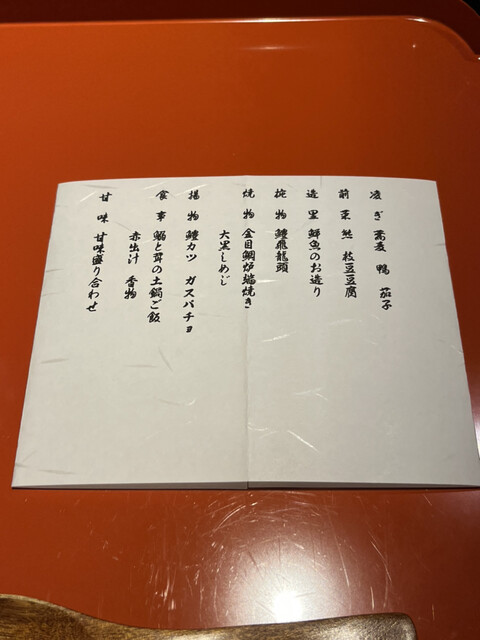 凌ぎ 蕎麦 鴨 茄子
前菜 枝豆豆腐
造里 鮮魚のお造り
椀物 鱧飛龍頭
焼物 金目鯛炉端焼き
大黒しめじ
揚物 鱧カツ ガスパチョ
食事 鰯と茸の土鍋ご飯
赤出汁 香物
甘味 甘味盛り合わせ